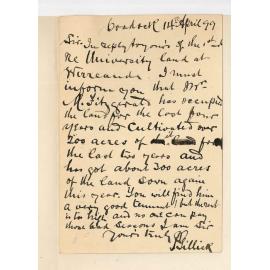 14th April 99
Sir In reply to yours of the 1st inst
re University land at
I must
inform you that Mr
M. Fitzgerald has occupied
the land for the last four
years and cultivated over
200 acres of land for
the last two years and
has got about 300 acres
of the land sown again
this year. You will find him
a very good tenant, but the rent
is too high and no one can pay
these bad seasons I am Sir
Yours truly